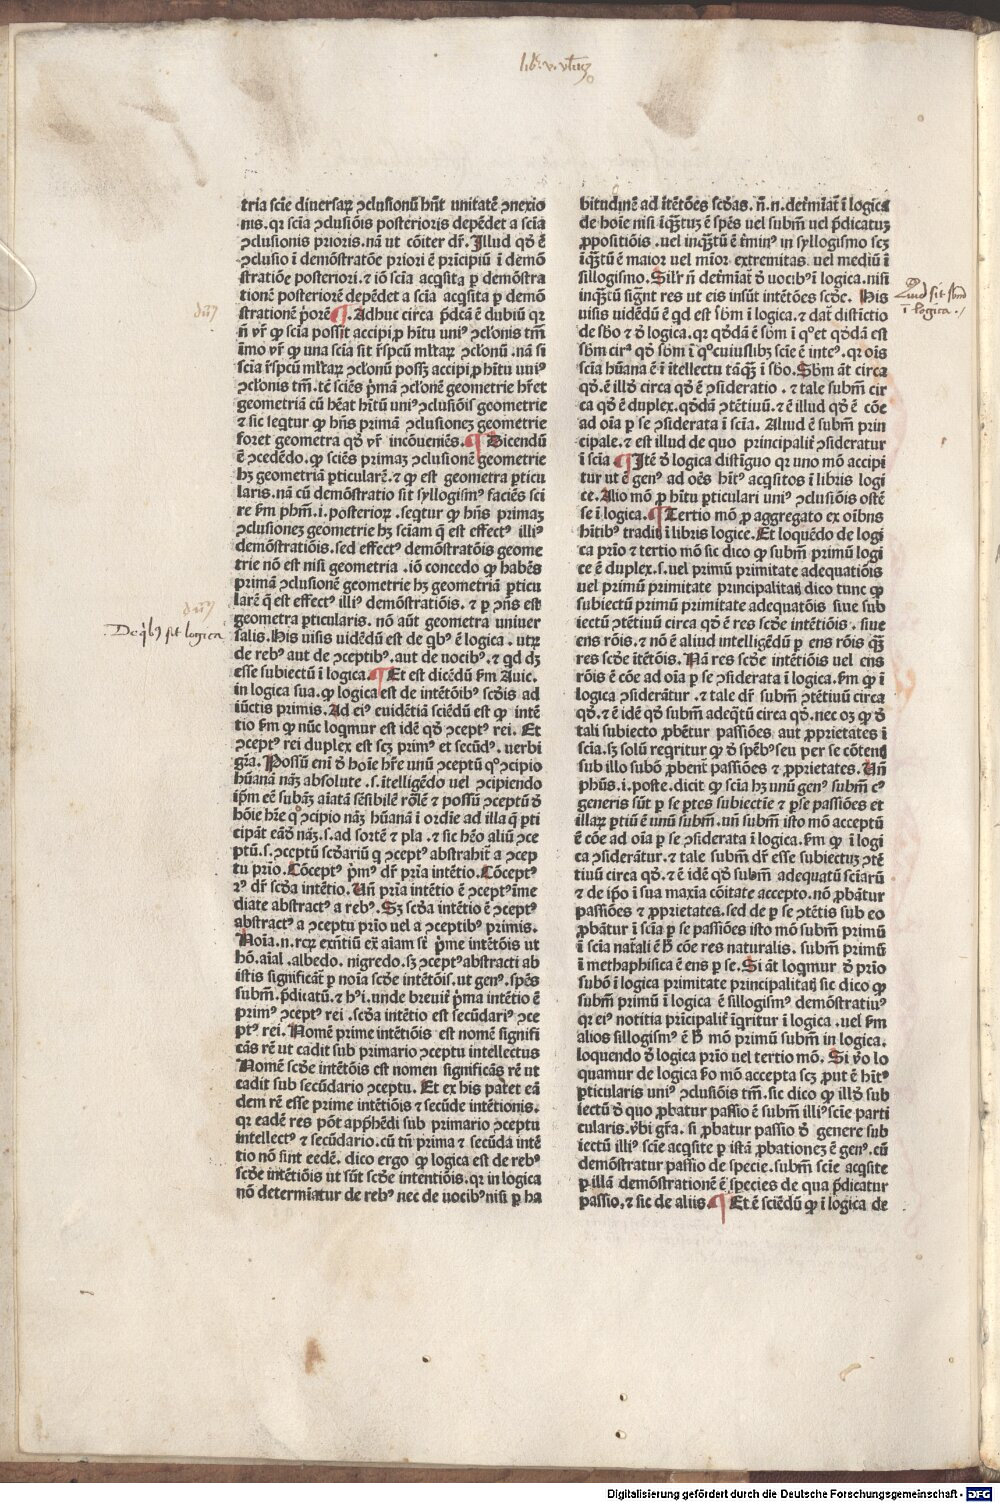 tria scīe diversaꝝ ꝯclusionū hn̄t unitatē ꝯnexio
nis. qꝛ scīa ꝯclusiōis posterioris depēdet a scīa
ꝯclusionis prioris. nā ut cōiter dr̄. Illud qđ ē
ꝯclusio ī demōstratōe priori ē prīcipiū ī demō
stratiōe posteriori. ⁊ iō scīa acqsita ꝑ demōstra
tionē posteriorē depēdet a scīa acqsita ꝑ demō
strationē p̄orē ¶. Adhuc circa p̄dcā ē dubiū qꝛ
scīa r̄spcū mltaꝝ ꝯclonū possꝫ accipi, ꝓ hītu uniꝰ
ꝯclonis tm̄. tē sciēs p̄mā ꝯclonē geometrie hr̄et
geometriā cū hēat hītū uniꝰ ꝯclusiōis geometrie
⁊ sic seqtur ꝙ hn̄s primā ꝯclusionez geometrie
foret geometra qđ vr̄ incōueniēs. ¶ Dicendū
ē ꝯcedēdo. ꝙ sciēs primaꝫ ꝯclusionē geometrie
hꝫ geometriā ꝑticularē. ⁊ ꝙ est geometra ꝑticu
laris. nā cū demōstratio sit syllogismꝰ faciēs sci
re ẜm phm̄. i. posterioꝝ. seqtur ꝙ hn̄s primaꝫ
ꝯclusionez geometrie hꝫ sciam q̄ est effectꝰ illiꝰ
demōstratiōis. sed effectꝰ demōstratōis geome
trie nō est nisi geometria. iō concedo ꝙ habēs
primā ꝯclusionē geometrie hꝫ geometriā ꝑticu
larē q̄ est effectꝰ illiꝰ demōstratiōis. ⁊ ꝑ ꝯn̄s est
geometra ꝑticularis. nō aūt geometra univer
salis. His visis vidēdū est de qbꝰ ē logica. utꝝ
de rebꝰ aut de ꝯceptibꝰ. aut de vocibꝰ. ⁊ qd dꝫ
esse subiectū ī logica. ¶ Et est dicēdū ẜm Avic.
in logica sua. ꝙ logica est de intētōibꝰ scđis ad
iūctis primis. Ad eiꝰ evidētiā sciēdū est ꝙ intē
tio ẜm ꝙ nūc loqmur est idē qđ ꝯceptꝰ rei. Et
ꝯceptꝰ rei duplex est scꝫ primꝰ et secūdꝰ. verbi
gr̄a. Possū eni đ hoīe hr̄e unū ꝯceptū qº ꝯcipio
hūanā naꝫ absolute. s. ītelligēdo vel ꝯcipiendo
ip̄m eē subāꝫ aīatā sēsibilē rōlē ⁊ possū ꝯceptū đ
hōie hr̄e qº ꝯcipio naꝫ hūanā ī ordīe ad illa q̄ ꝑti
cipāt eādꝫ naꝫ. s. ad sortē ⁊ pla. ⁊ sic hēo aliū ꝯce
ptū. s. ꝯceptū scđariū q ꝯceptꝰ abstrahit̄ a ꝯcep
tu prīo. Cōceptꝰ p̄mꝰ dr̄ prīa intētio. Cōceptꝰ
2ꝰ dr̄ scđa intētio. Un̄ prīa intētio ē ꝯceptꝰ īme
diate abstractꝰ a rebꝰ. Sꝫ scđa intētio ē ꝯceptꝰ
abstractꝰ a ꝯceptu prīo vel a ꝯceptibꝰ primis.
Noīa. n. reꝝ exn̄tiū ex aīam st̄ p̄me intētōis ut
hō. aīal. albedo. nigredo. sꝫ ꝯceptꝰ abstracti ab
istis significāt̄ ꝑ noīa scđe intētōis. ut genꝰ. spēs
subm̄. p̄dicatū. ⁊ hꝰi. unde breviē p̄ma intētio ē
primꝰ ꝯceptꝰ rei. scđa intētio est secūdariꝰ ꝯce
ptꝰ rei. Nomē prime intētiōis est nomē signifi
cās rē ut cadit sub primario ꝯceptu intellectus
Nomē scđe intētōis est nomen significās rē ut
cadit sub secūdario ꝯceptu. Et ex his patet eā
dem rē esse prime intētiōis ⁊ secūde intētionis.
qꝛ eadē res pōt app̄hēdi sub primario ꝯceptu
intellectꝰ ⁊ secūdario. cū tn̄ prima ⁊ secūda intē
tio nō sint eedē. dico ergo ꝙ logica est de rebꝰ
scđe intētiōis ut sūt scđe intentiōis. qꝛ in logica
nō determīatur de rebꝰ nec de vocibꝰ nisi ꝑ ha
bitudinē ad ītētōes scđas. n̄. n. det̄mīat̄ ī logica
de hoīe nisi īqꝫtuꝫ ē spēs vel subm̄ vel p̄dicatuꝫ
ꝓpositiōis. vel inqꝫtū ē t̄minꝰ in syllogismo scꝫ
īqꝫtū ē maior vel mīor extremitas. vel mediū ī
sillogismo. Silr̄ n̄ det̄mīat̄ đ vocibꝰ ī logica. nisi
inqꝫtū sign̄t res ut eis insūt intētōes scđe. His
visis vidēdū ē qd est sƀm ī logica. ⁊ dat̄ distīctio
de sƀo ⁊ đ logica. qꝛ qđdā ē sƀm ī qº et qđdā est
sƀm circa qđ sƀm ī qº cuiuslibꝫ scīe ē inteꝰ. qꝛ oīs
scīa hūana ē ī ītellectu tāqꝫ ī sƀo. Sƀm āt circa
qđ. ē illđ circa qđ ē ꝯsideratio. ⁊ tale subm̄ cir
ca qđ ē duplex. qđdā ꝯtētivū. ⁊ ē illud qđ ē cōe
ad oīa ꝑ se ꝯsiderata ī scīa. Aliud ē subm̄ prin
cipale. ⁊ est illud de quo principalit̄ ꝯsideratur
ī scīa ¶ Itē đ logica distīguo qꝛ uno mō accipi
tur ut ē genꝰ ad oēs hītꝰ acqsitos ī libris logi
ce. Alio mō ꝓ hītu ꝑticulari uniꝰ ꝯclusiōis ostē
se ī logica. ¶ Tertio mō ꝓ aggregato ex oībus
hītibꝰ tradit̄ ī libris logice. Et loquēdo de logi
ca prīo ⁊ tertio mō sic dico ꝙ subm̄ primū logi
ce ē duplex. s. vel primū primitate adequatiōis
vel primū primitate principalitatꝭ dico tunc ꝙ
subiectū primū primitate adequatōis sive sub
iectū ꝯtētivū circa qđ ē res scđe intētiōis. sive
ens rōis. ⁊ nō ē aliud intelligēdū ꝑ ens rōis qꝫ
res scđe ītētōis. Nā res scđe intētiōis vel ens
rōis ē cōe ad oīa ꝑ se ꝯsiderata ī logica. ẜm ꝙ ī
logica ꝯsiderātur. ⁊ tale dr̄ subm̄ ꝯtētivū circa
qđ. ⁊ ē idē qđ subm̄ adeq̄tū circa qđ. nec oꝫ ꝙ đ
tali subiecto ꝓbētur passiōes aut ꝓprietates ī
scīa. sꝫ solū reqritur ꝙ đ spēbꝰ seu per se cōtentꝭ
sub illo subō ꝓbent̄ passiōes ⁊ ꝓprietates. Un̄
phūs. i. poste. dicit ꝙ scīa hꝫ unū genꝰ subm̄ cꝰ
generis sūt ꝑ se ꝑtes subiectīe ⁊ ꝑse passiōes et
illaꝝ ꝑtiū ē unū subm̄. un̄ subm̄ isto mō acceptū
ē cōe ad oīa ꝑ se ꝯsiderata ī logica. ẜm ꝙ ī logi
ca ꝯsiderātur. ⁊ tale subm̄ dr̄ esse subiectuꝫ ꝯtē
tiuū circa qđ. ⁊ ē idē qđ subm̄ adequatū sciarū
⁊ de ip̄o ī sua maxīa cōitate accepto. nō ꝓbātur
passiōes ⁊ ꝓprietates. sed de ꝑ se ꝯtētis sub eo
ꝓbātur ī scīa ꝑ se passiōes isto mō subm̄ primū
ī scīa natāli ē ƀ cōe res naturalis. subm̄ primū
ī methaphisica ē ens ꝑ se. Si āt loqmur đ prīo
subō ī logica primitate principalitatꝭ sic dico ꝙ
subm̄ primū ī logica ē sillogismꝰ demōstratiuꝰ
qꝛ eiꝰ notitia prīcipalit̄ īqritur ī logica. vel ẜm
alios sillogismꝰ ē ƀ mō primū subm̄ in logica.
loquendo đ logica prīo vel tertio mō. Si v̄o lo
quamur de logica ẜo mō accepta scꝫ ꝓut ē hītꝰ
ꝑticularis uniꝰ ꝯclusiōis tm̄. sic dico ꝙ illđ sub
iectū đ quo ꝓbatur passio ē subm̄ illiꝰ scīe parti
cularis. v̄bi gr̄a. si ꝓbatur passio đ genere sub
iectū illiꝰ scīe acqsite ꝑ istā ꝓbationeꝫ ē genꝰ. cū
demōstratur passio de specie. subm̄ scīe acqsite
ꝑ illā demōstrationē ē species de qua p̄dicatur
passio. ⁊ sic de aliis. ¶ Et ē sciēdū ꝙ ī logica de
De qbꝰ sit logica
Quid sit sbm̄
ī logica.
Digitalisierung gefördert durch die Deutsche Forschungsgemeinschaft - DFG